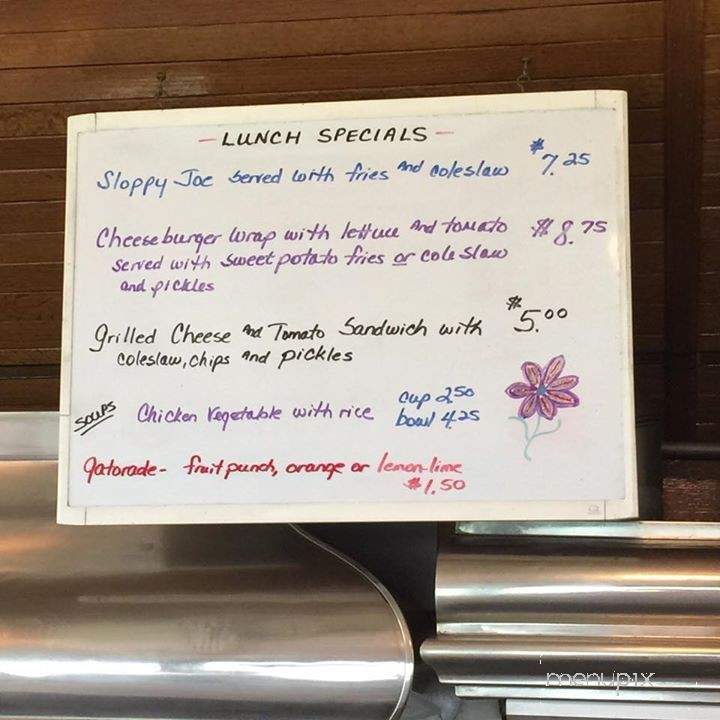 - LUNCH SPECIALS -
Sloppy Joe served with fries and coleslaw $7.25
Cheeseburger wrap with lettuce and tomato $8.75
served with sweet potato fries or coleslaw
and pickles
Grilled Cheese and Tomato Sandwich with $5.00
coleslaw, chips and pickles
SOUPS Chicken Vegetable with rice cup 2.50
bowl 4.25
gatorade - fruit punch, orange or lemon-lime
$1.50
menupix